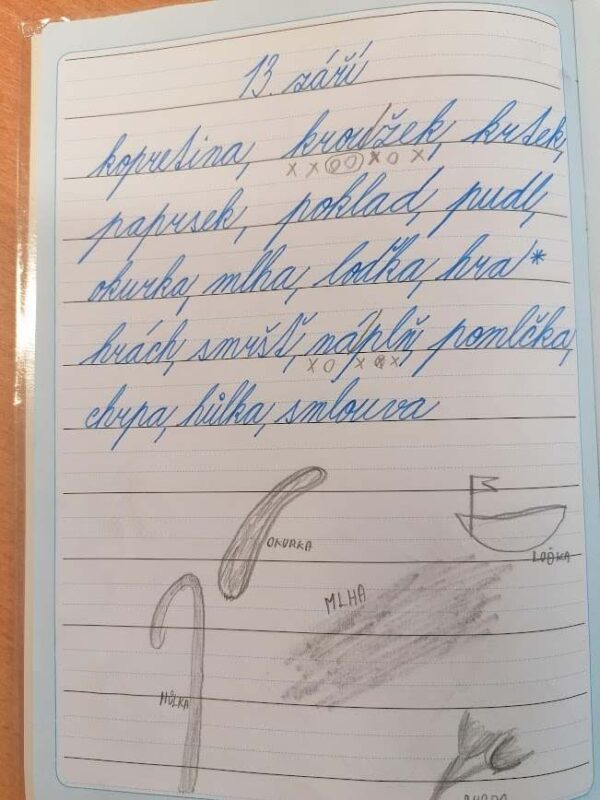 13. září
kopretina, kroužek, krtek,
x x o o x o x
paprsek, poklad, pudl,
okurka, mlha, loďka, hra*
hrách, smršť, náplň, pomlčka,
x o x x x
chrpa, hůlka, smlouva
OKURKA
LOĎKA
MLHA
HŮLKA